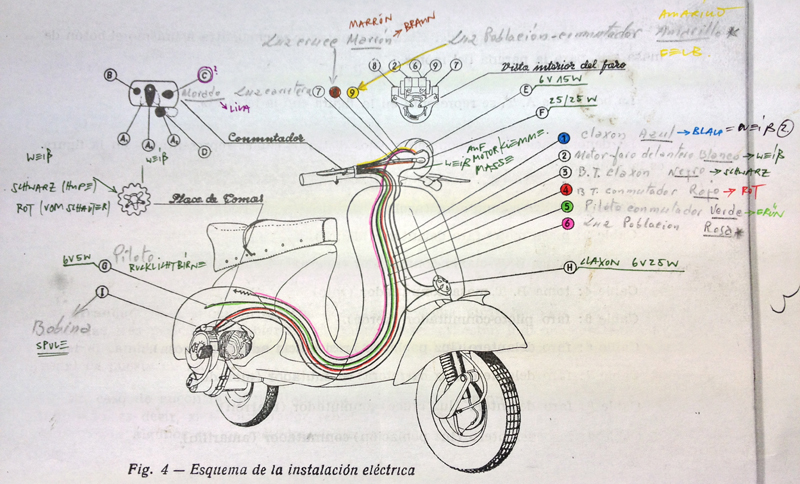 MARRÓN → BRAUN
AMARILLO
Luz cruce Marrón
Luz Población-conmutador Amarillo *
GELB
8 2 6 9 7
Vista interior del faro
B
C ?
Morado Luz carretera
LILA
7
9
E 6V 15W
F 25/25W
A₁ A₂ A₃ D
Conmutador
WEIß
WEIß
AUF MOTORKLEMME.
WEIß MASSE
1 claxon Azul → BLAU = WEIß 2
2 Motor-faro delantero Blanco → WEIß
3 B.T. claxon Negro → SCHWARZ
4 B.T. conmutador Rojo → ROT
5 Piloto conmutador Verde → GRÜN
6 Luz Poblacion Rosa *
SCHWARZ (HUPE)
ROT (VOM SCHALTER)
Placa de Tomas
6V5W
Piloto
G
RÜCKLICHTBIRNE
H CLAXON 6V25W
I
Bobina
SPULE
Fig. 4 — Esquema de la instalación eléctrica